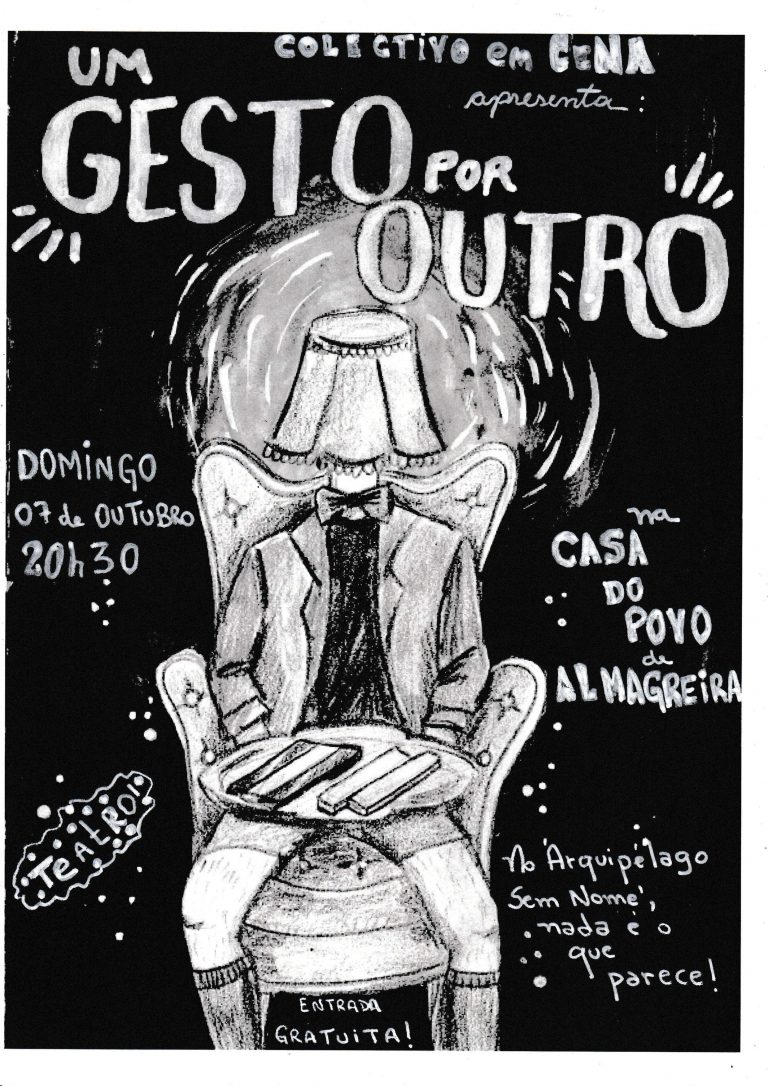 COLECTIVO em CENA
apresenta:
UM
GESTO POR
OUTRO
DOMINGO
07 de OUTUBRO
20h30
na
CASA
DO
POVO
de
ALMAGREIRA
TEATRO!
No 'Arquipélago
Sem Nome',
nada é o
que
parece!
ENTRADA
GRATUITA!